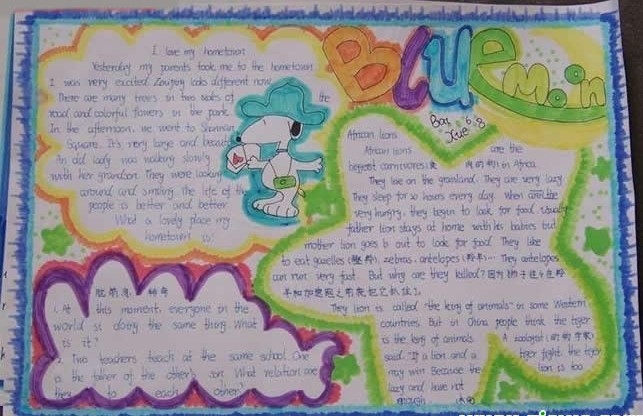 BLUE
Moon
I love my hometown
Yesterday my parents took me to the hometown
I was very excited. Zouping looks different now.
There are many trees in two sides of the
road and colorful flowers in the park.
In the afternoon, we went to
Square. It's very large and beauti
An old lady was walking slowly
with her grandson. They were looking
around and smiling. the life of the
people is better and better
What a lovely place my
hometown is!
1. At this moment, everyone in the
world si doing the same thing. What
is it?
2. Two teachers teach at the same school. One
is the father of the other's son. What relation are
they to each other?
6.8
African lions
African lions are the
biggest carnivores in Africa.
They live on the grassland. They are very lazy.
They sleep for 20 hours every day. When are the
very hungry, they begin to look for food. Usually
father lion stays at home with his babies but
mother lion goes out to look for food. They like
to eat gazelles zebras. antelopes antelopes
can run very fast. But why are they killed?
They lion is called "the king of animals" in some Western
countries. But in China people think the tiger
is the king of animals. A zoologist
said "If a lion and a tiger fight. the tiger
may win. Because the lion is too
lazy and have not
enough